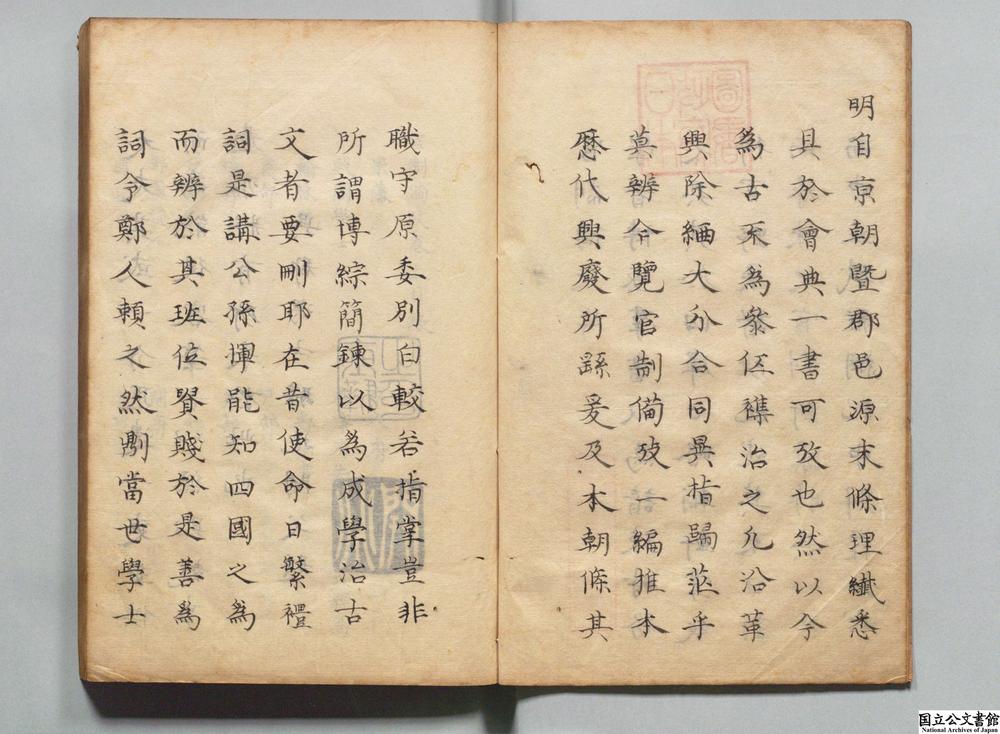 明自京朝暨郡邑源末條理纎悉
具於會典一書可攷也然以今
為古不為叅伍襍治之凢沿革
興除緬大分合同異指歸茫乎
莫辨今覽官制備攷一編推本
歷代興廢所繇爰及本朝條其
職守原委別白較若指掌豈非
所謂博綜簡鍊以為成學治古
文者要刪耶在昔使命日繁禮
詞是講公孫揮能知四國之為
而辨於其班位貿賤於是善為
詞令鄭人賴之然則當世學士
国立公文書館
National Archives of Japan